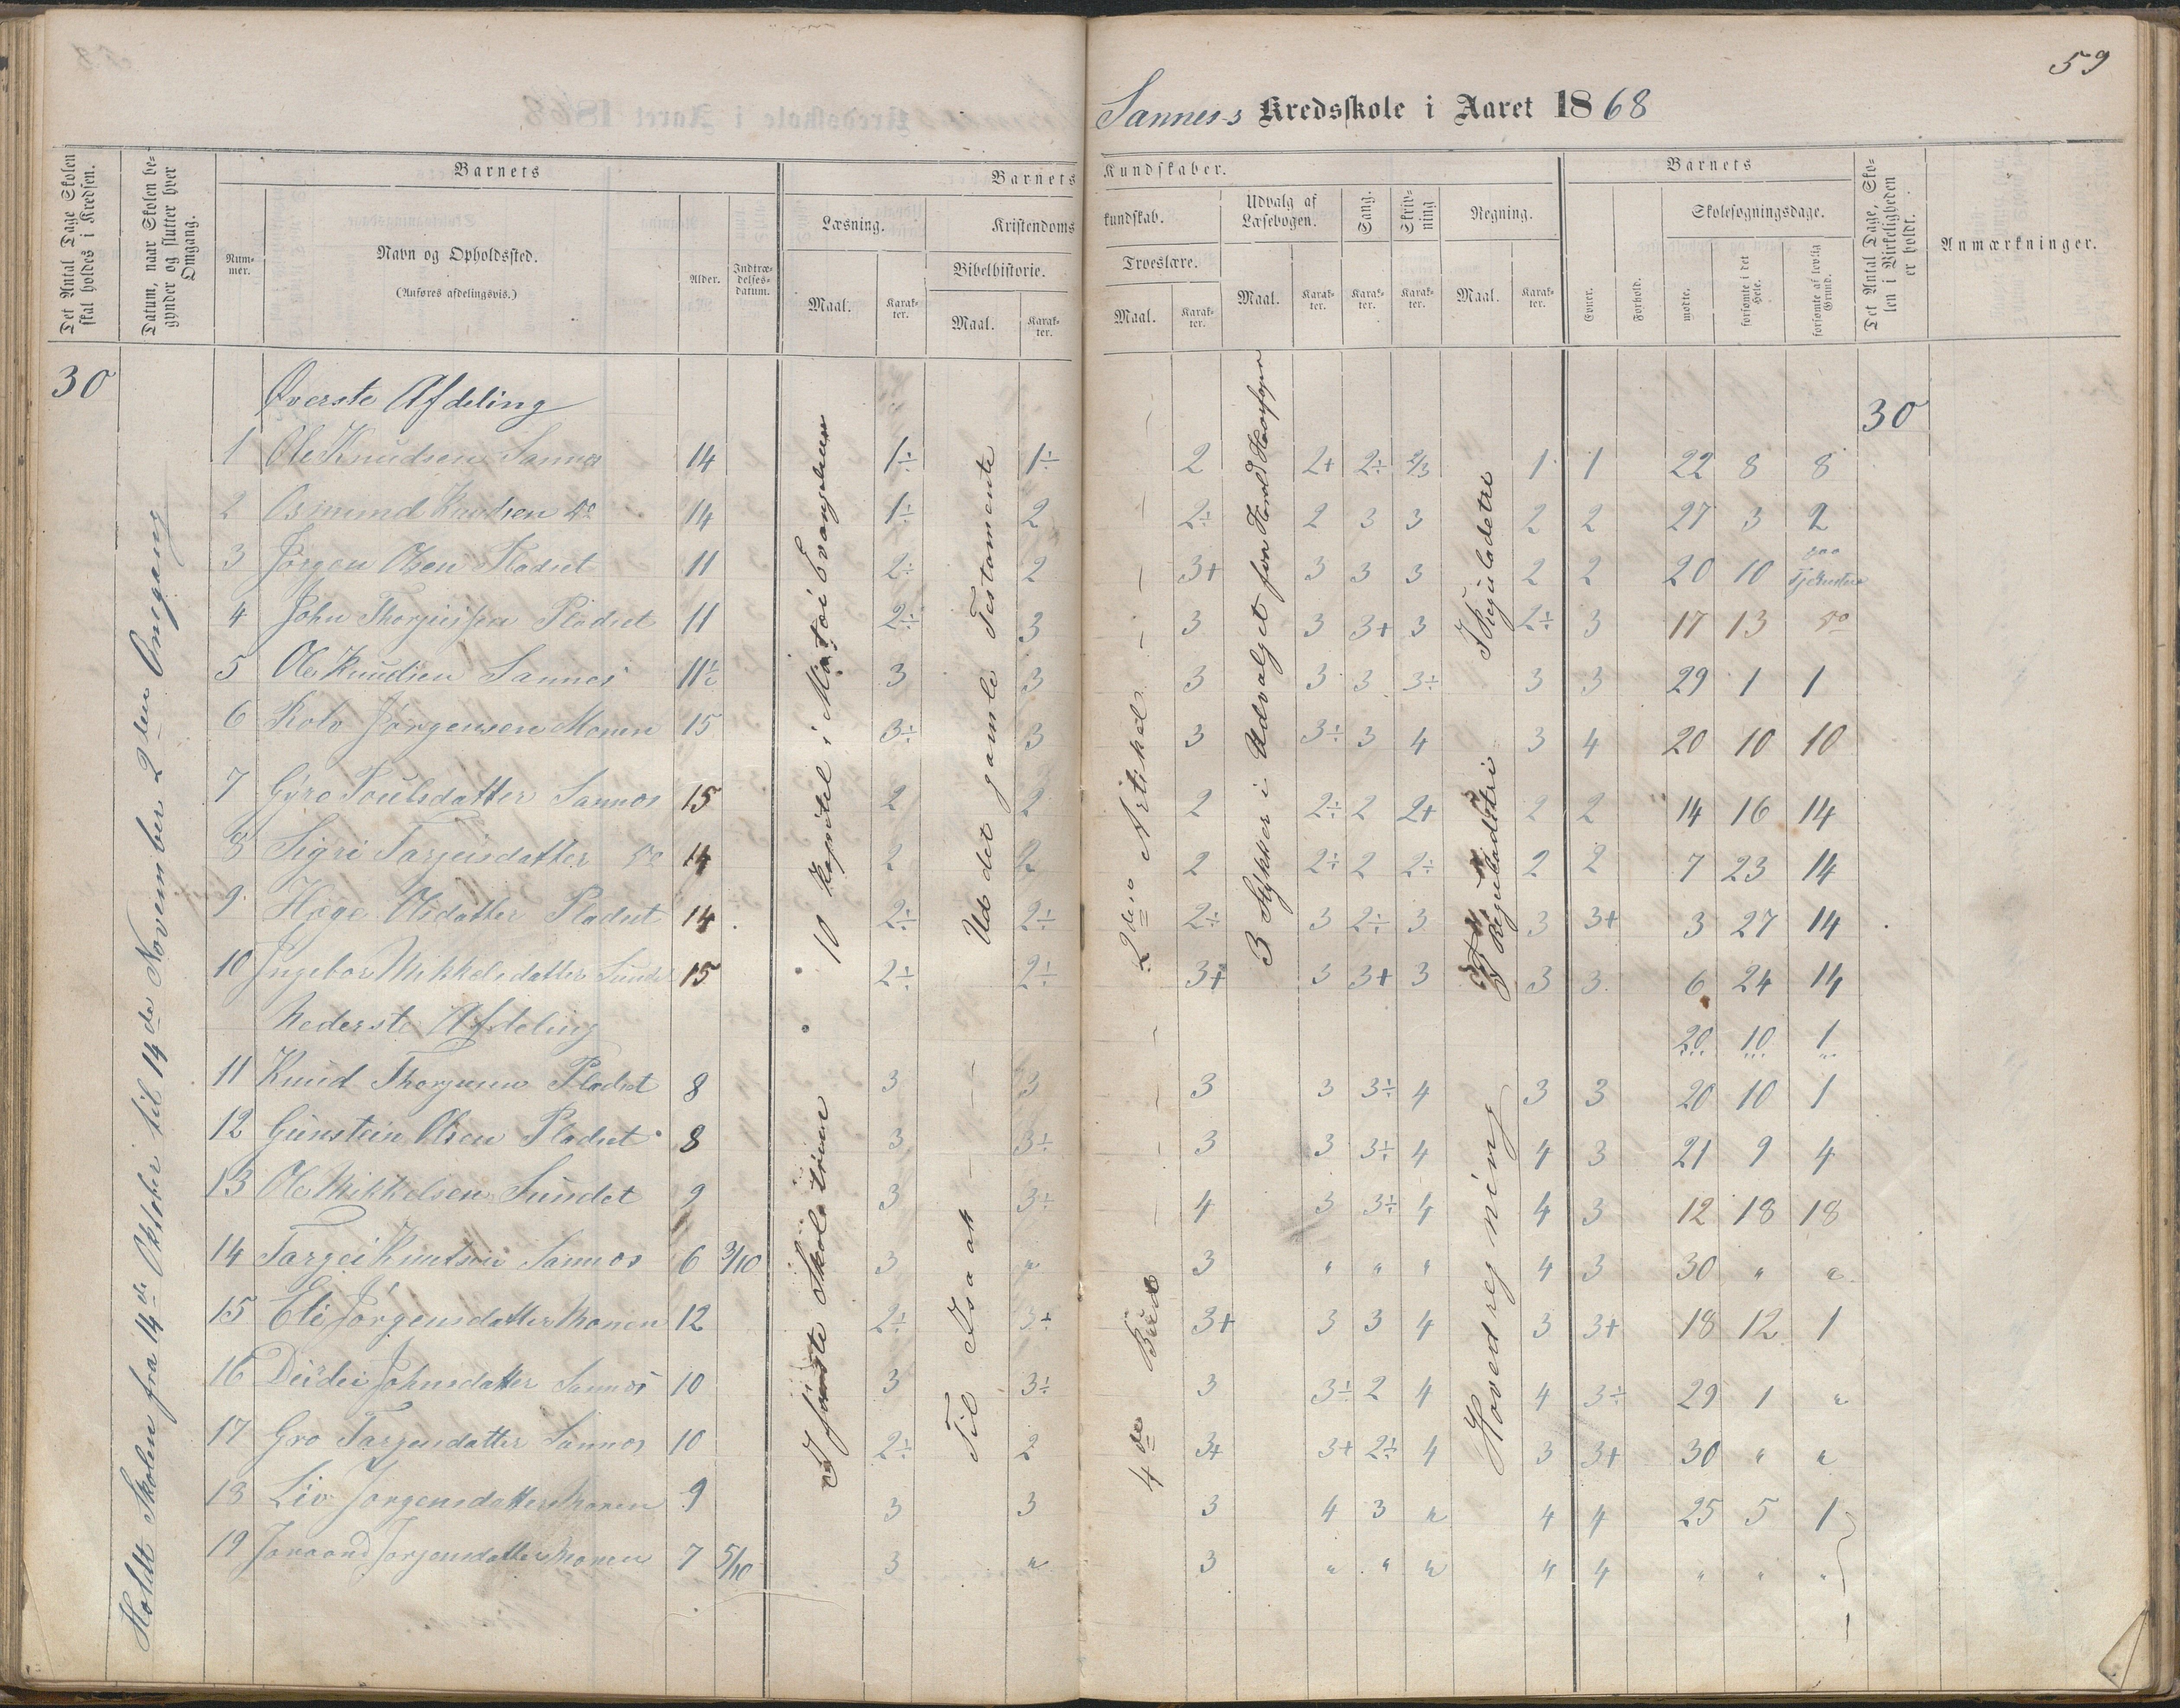 59
Sannes s Kredsskole i Aaret 1868
Det Antal Dage Skolen skal holdes i Kredsen.
Datum, naar Skolen begynder og slutter hver Omgang.
Barnets
Nummer.
Navn og Opholdssted.
(Anføres afdelingsvis.)
Alder.
Indtrædelsesdatum.
Barnets Kundskaber.
Læsning.
Maal.
Karakter.
Kristendomskundskab.
Bibelhistorie.
Maal.
Karakter.
Troeslære.
Maal.
Karakter.
Udvalg af Læsebogen.
Maal.
Karakter.
Sang.
Karakter.
Skrivning
Karakter.
Regning.
Maal.
Karakter.
Barnets
Evner.
Forhold.
Skolesøgningsdage.
mødte.
forsømte i det Hele.
forsømte af lovlig Grund.
Det Antal Dage, Skolen i Virkeligheden er holdt.
Anmærkninger.
30
30
Holdt Skolen fra 14de Oktober til 14de November 2den Omgang
10 Kapitel i Evangelium
Ud det gamle Testamente
2den Artikel
3 Stykker i Udvalget fra
I Reguladetri
I Reguladetri
Øverste Afdeling
1 Ole Knudsen Sannes 14 1÷ 1÷ 2 2+ 2÷ 2/3 1 1 22 8 8
2 Osmund Knudsen do 14 1÷ 2 2÷ 2 3 3 2 2 27 3 2
3 Jørgen Olsen Pladset 11 2÷ 2 3+ 3 3 3 2 2 20 10 paa Tjeneste
4 John Pladset 11 2÷ 3 3 3 3+ 3 2÷ 3 17 13 do
5 Ole Knudsen Sannes 11½ 3 3 3 3 3 3÷ 3 3 29 1 1
6 Rolv Jørgensen Monen 15 3÷ 3 3 3÷ 3 4 3 4 20 10 10
7 Gyro Sannes 15 2 2 2 2÷ 2 2+ 2 2 14 16 14
8 Sigri Targeisdatter do 14 2 2 2 2÷ 2 2÷ 2 2 7 23 14
9 Hæge Olsdatter Pladset 14 2÷ 2÷ 2÷ 3 2÷ 3 3 3+ 3 27 14
10 Ingebor Mikkelsdatter 15 2÷ 2÷ 3+ 3 3+ 3 3 3 6 24 14
Nederste Afdeling 20 10 1
I første Skoletrinn
Til Isaak
4de Bud
Hovedregning
11 Knud Pladset 8 3 3 3 3 3÷ 4 3 3 20 10 1
12 Gunstein Olsen Pladset 8 3 3÷ 3 3 3÷ 4 4 3 21 9 4
13 Ole Mikkelsen Sundet 9 3 3÷ 4 3 3÷ 4 4 3 12 18 18
14 Targei Knutson Sannes 6 3/10 3 " 3 " " " 4 3 30 " "
15 Eli Jørgensdatter Monen 12 2÷ 3÷ 3+ 3 3 4 3 3+ 18 12 1
16 Johnsdatter Sannes 10 3 3÷ 3 3÷ 2 4 4 3÷ 29 1 "
17 Gro Targeisdatter Sannes 10 2÷ 2 3+ 3+ 2÷ 4 3 3+ 30 " "
18 Liv Jørgensdatter Monen 9 3 3 3 4 3 " 4 4 25 5 1
19 Jørgensdatter Monen 7 5/10 3 " 3 " " " " 4 " " "